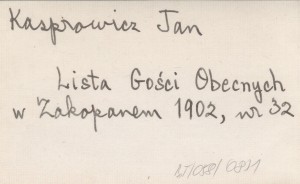 Kasprowicz Jan
Lista Gości Obecnych
w Zakopanem 1902, nr 32